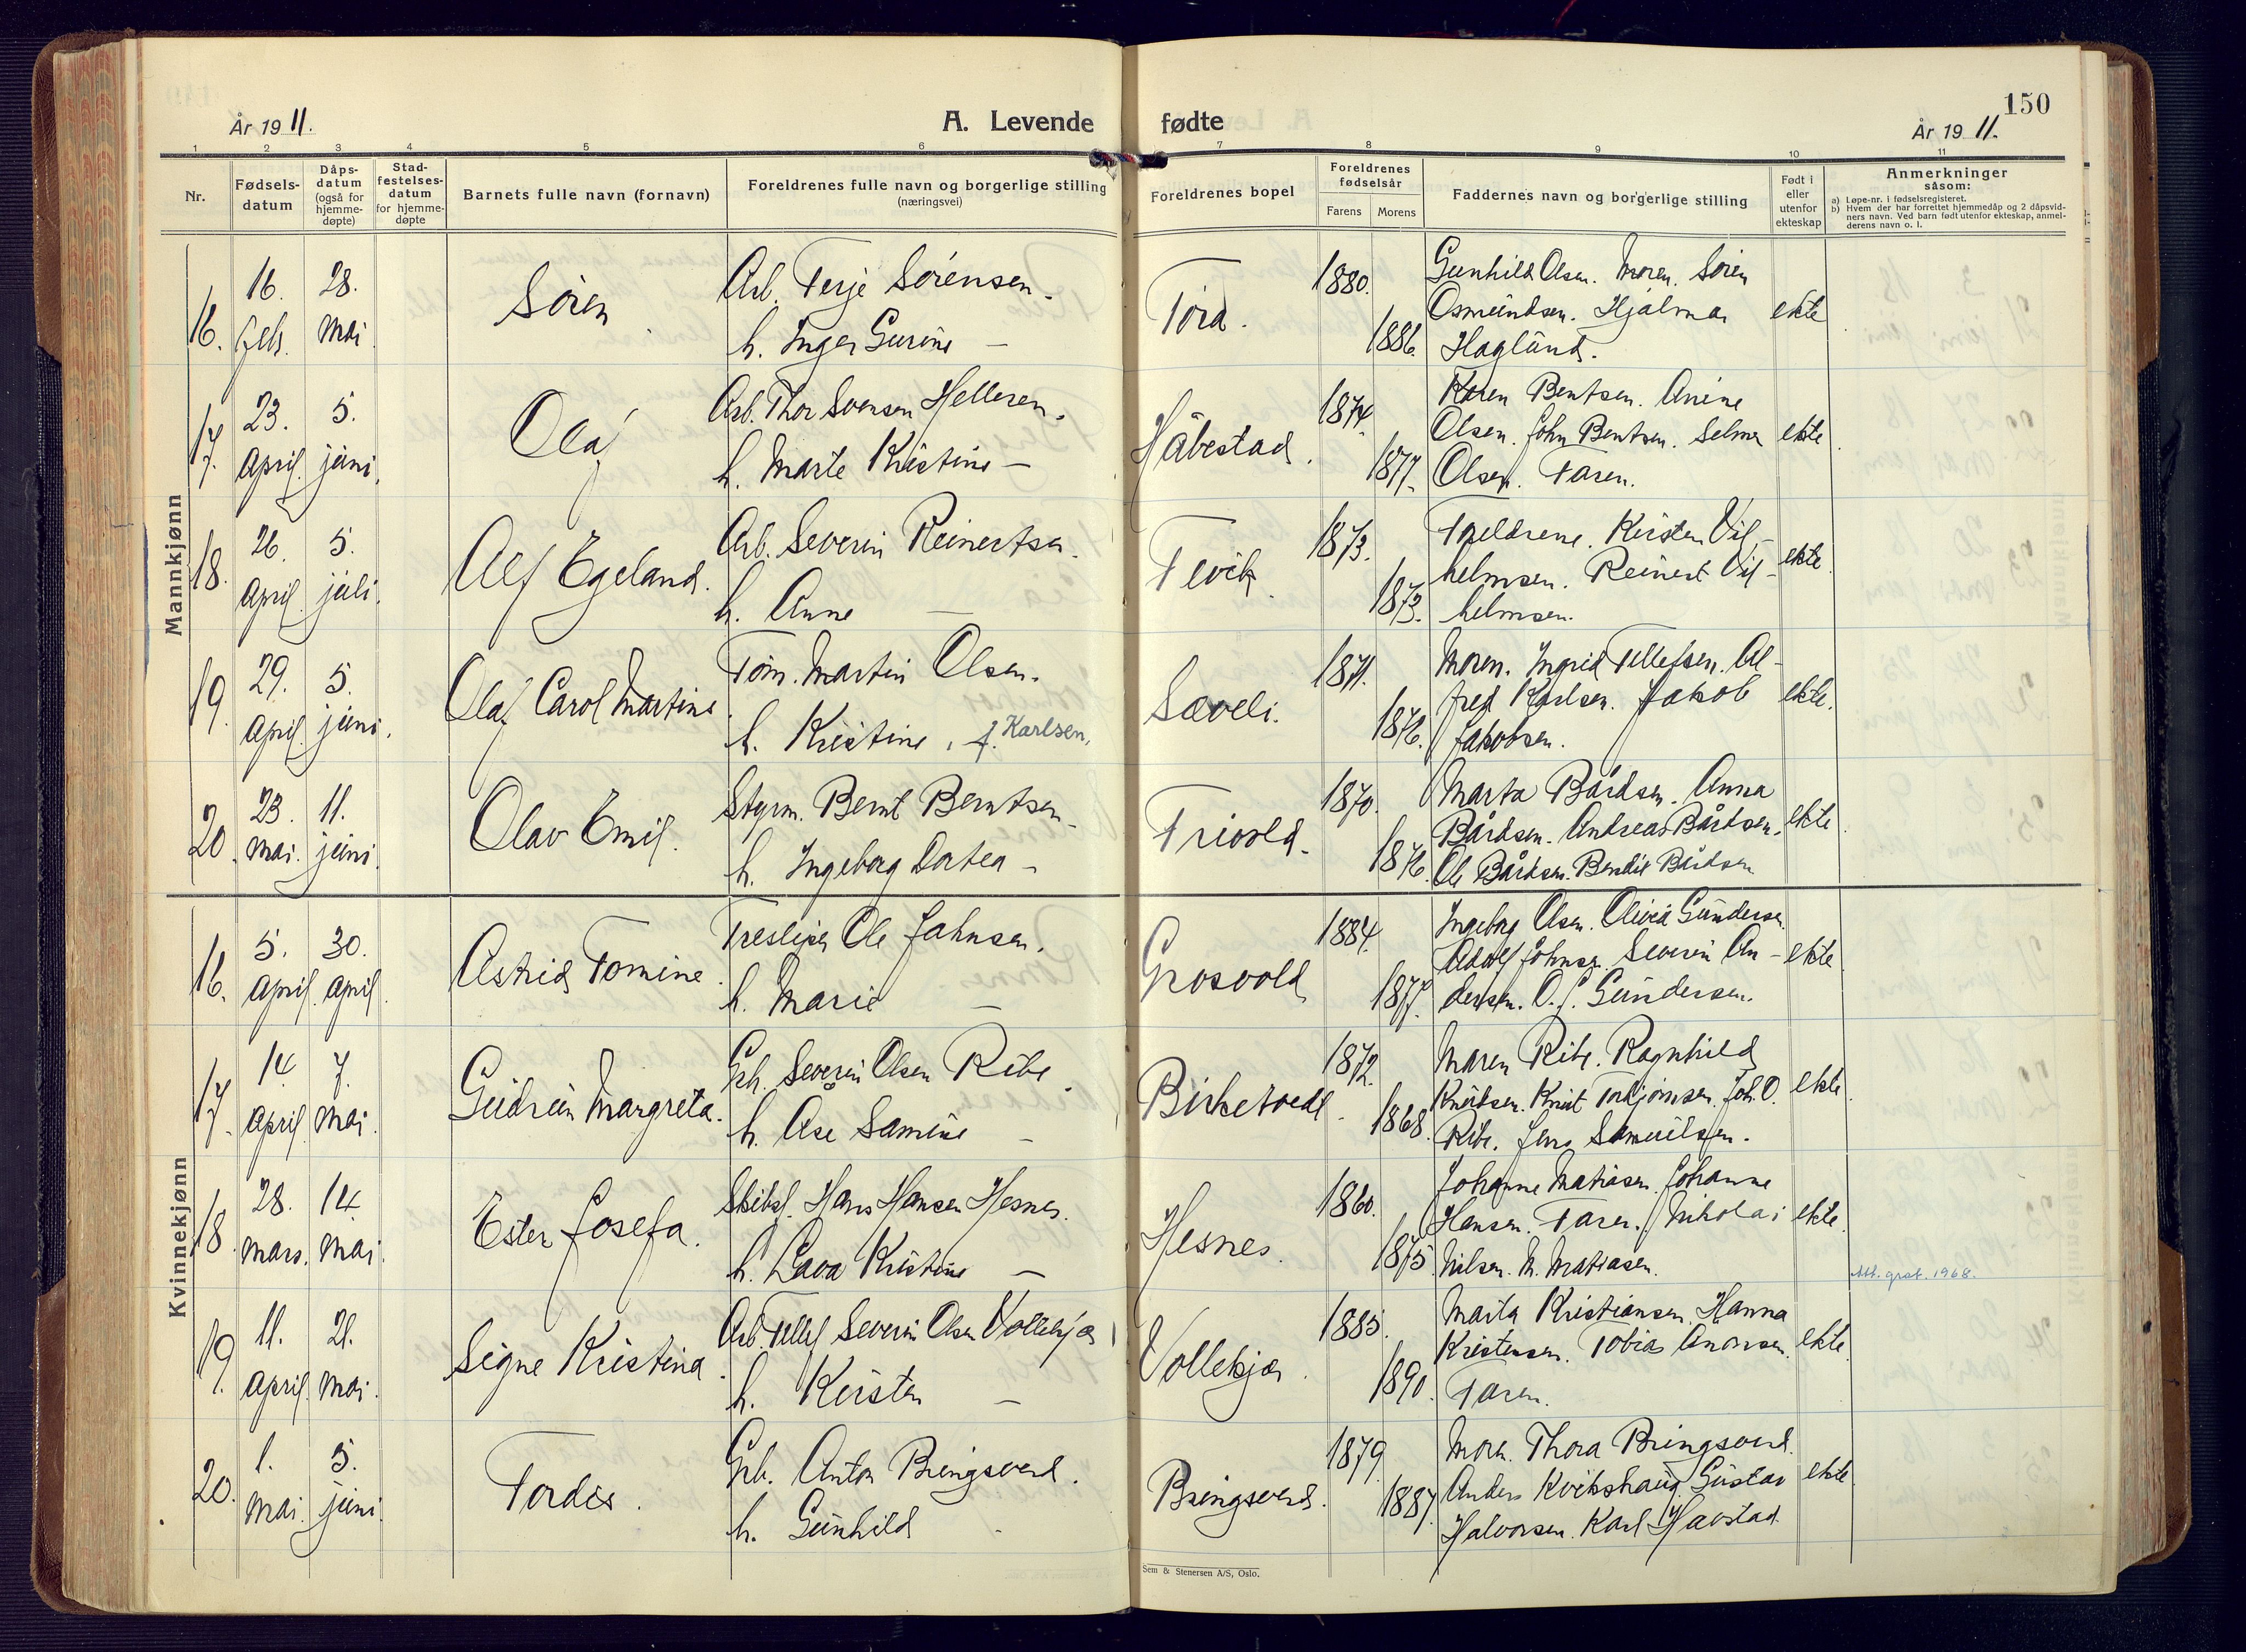 150
År 19 11.
A. Levende fødte
År 19 11.
1 2 3 4 5 6 7 8 9 10 11
Nr.
Fødsels-
datum
Dåps-
datum
(også for
hjemme-
døpte)
Stad-
festelses-
datum
for hjemme-
døpte
Barnets fulle navn (fornavn)
Foreldrenes fulle navn og borgerlige stilling
(næringsvei)
Foreldrenes bopel
Foreldrenes
fødselsår
Farens Morens
Faddernes navn og borgerlige stilling
Født i
eller
utenfor
ekteskap
Anmerkninger
såsom:
a) Løpe-nr. i fødselsregisteret.
b) Hvem der har forrettet hjemmedåp og 2 dåpsvid-
ners navn. Ved barn født utenfor ekteskap, anmel-
derens navn o. l.
Mannkjønn
16. 16. febr. 28. mai
Søren
Arb. Terje Sørensen.
h. Inger Gurine —
1880.
1886.
Gunhild Olsen. Moren. Søren
Osmundsen. Hjalmar
Haglund.
ekte
17. 23. April. 5. juni.
Olaf
Arb. Thor Svensen Helleren.
h. Marte Kristine —
Håbestad.
1874.
1877.
Karen Bentsen. Anine
Olsen. John Bentsen. Selmer
Olsen. Faren.
ekte
18. 26. April. 5. juli.
Alf Egeland.
Arb. Severin Reinertsen.
h. Anne —
Fevik.
1873.
1873.
Foreldrene. Kirsten Vil-
helmsen. Reinert Vil-
helmsen.
ekte.
19. 29. April. 5. juni.
Olaf Carol Martins.
Tøm. Martin Olsen.
h. Kristine, f. Karlsen.
Sæveli.
1871.
1876.
Moren. Ingrid Tellefsen. Al-
fred Karlsen. Jakob
Jakobsen.
ekte.
20. 23. mai. 11. juni.
Olav Emil.
Styrm. Bernt Berntsen
h. Ingeborg Dortea —
Frivold.
1870.
1876.
Marta Bårdsen. Anna
Bårdsen. Andreas Bårdsen.
Ole Bårdsen. Bendix Bårdsen
ekte.
Kvinnekjønn
16. 5. April. 30. April.
Astrid Tomine.
Ole Johnsen.
h. Marie —
Grosvold
1884.
1877.
Ingeborg Olsen. Olivia Gundersen.
Adolf Johnsen. Severin An-
dersen. O. J. Gundersen.
ekte
17. 14. April. 7. Mai.
Gudrun Margreta.
Gb. Severin Olsen Ribe.
h. Åse Samine —
Birketvedt.
1872.
1868.
Maren Ribe. Ragnhild
Knudsen. Knut Torbjørnsen. Joh. O.
Ribe. Jens Samuelsen.
ekte
18. 28. mars. 14. mai.
Ester Josefa.
Skibsf. Hans Hansen Hesnes.
h. Lava Kristine —
Hesnes.
1860.
1875.
Johanne Matiasen. Johanne
Hansen. Faren. Nikolai
Nilsen. M. Matiasen.
ekte.
Att. grat. 1968.
19. 11. April. 21. Mai.
Signe Kristina.
Arb. Tellef Severin Olsen Vollekjær
h. Kirsten —
Vollekjær.
1885.
1890.
Marta Kristiansen. Hanna
Kristensen. Tobias Anonsen.
Faren.
ekte.
20. 1. mai. 5. juni.
Tordis.
Gb. Anton Bringsverd.
h. Gunhild -
Bringsverd.
1879
1887.
Moren. Thora Bringsverd.
Anders Kvikshaug. Gustav
Halvorsen. Karl Havstad.
ekte
Sem & Stenersen A/S, Oslo.